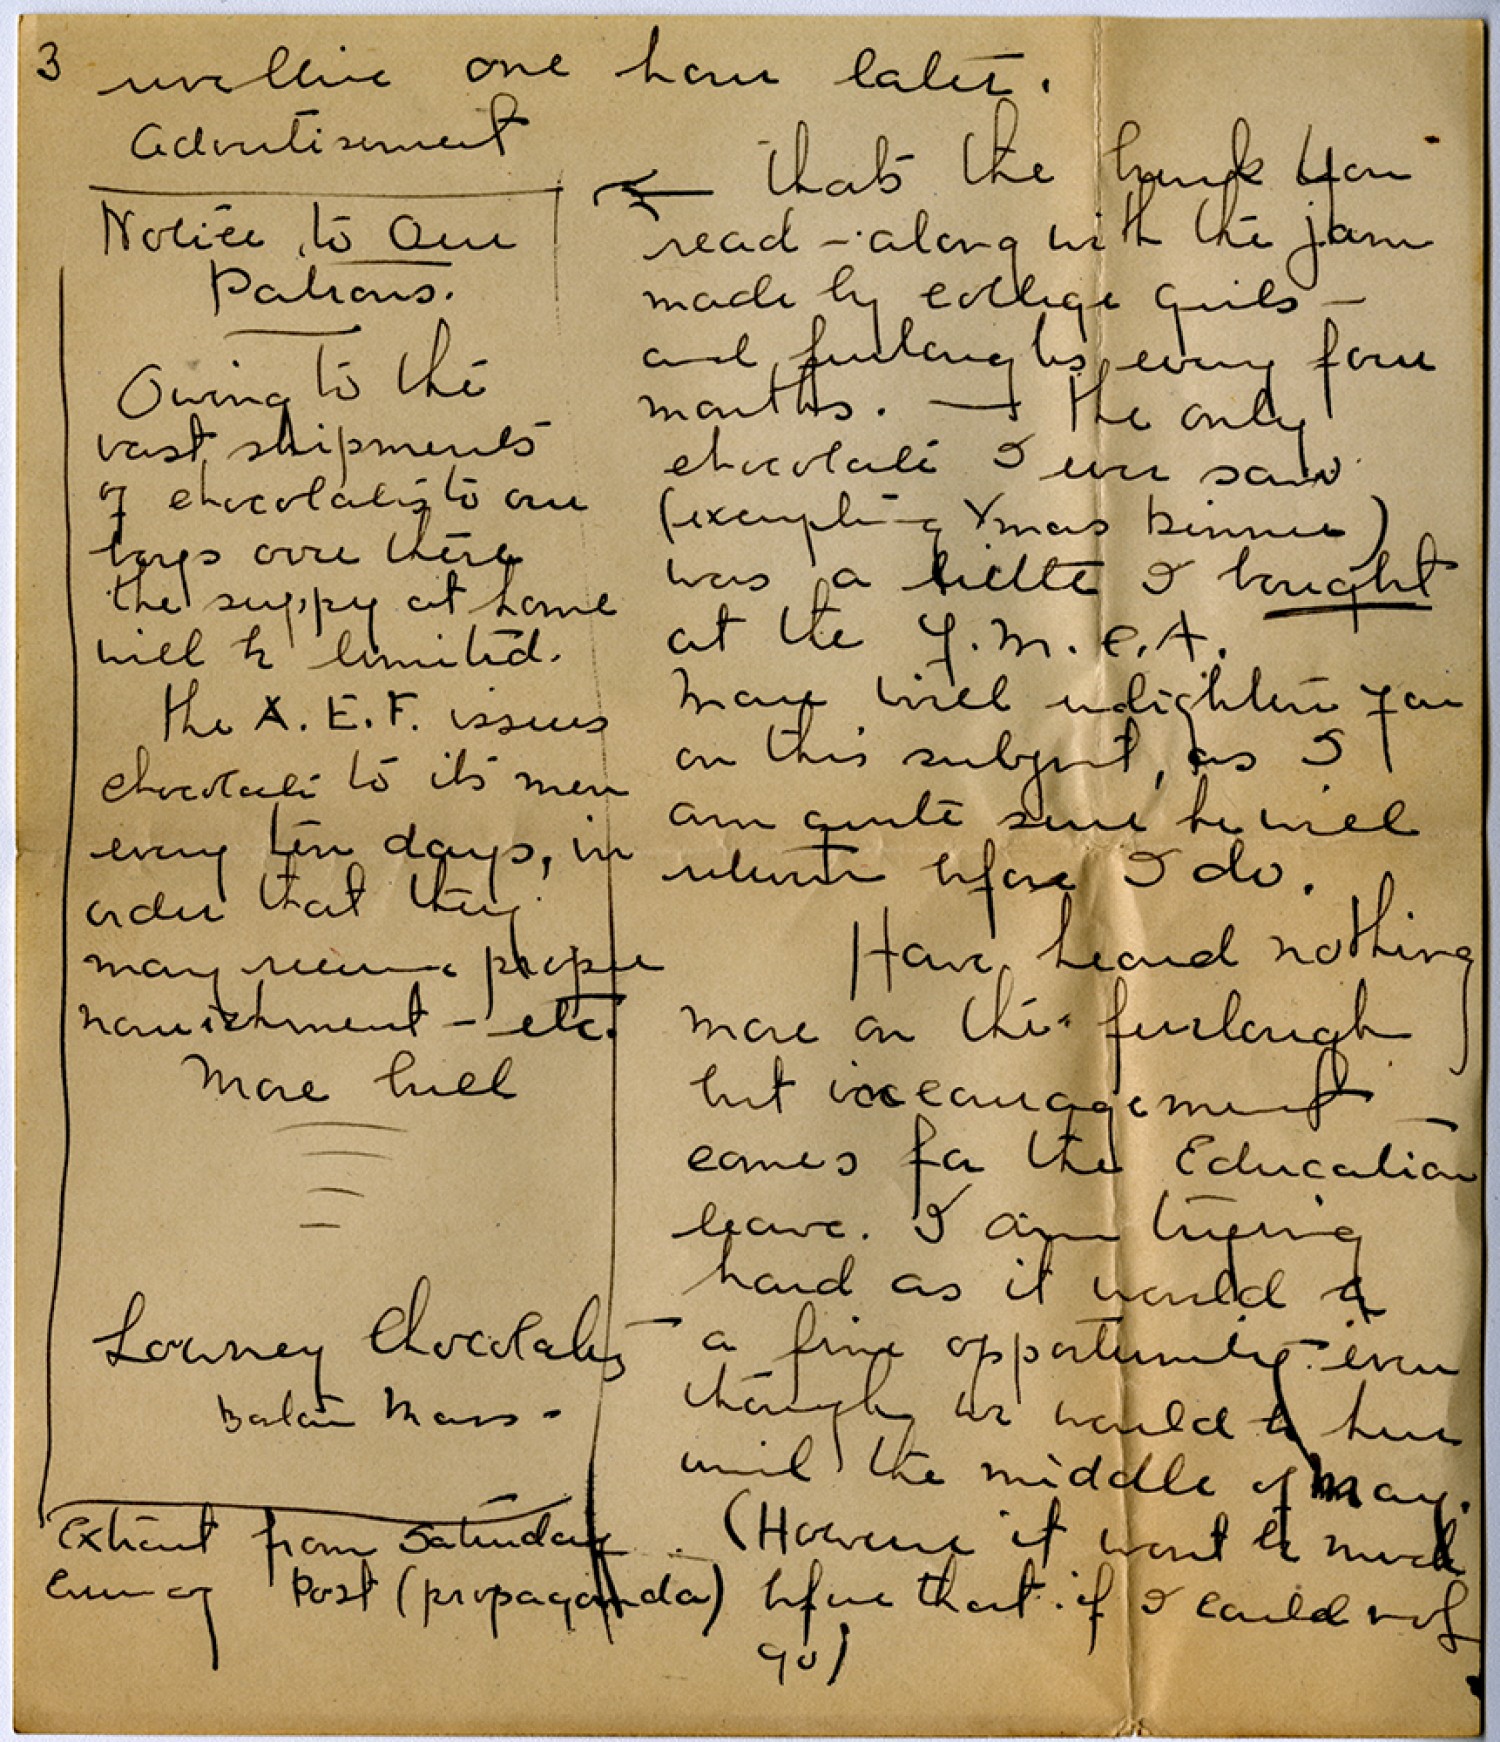 3
reveille one hour later.
Advertisement
Notice to Our
Patrons.
Owing to the
vast shipments
of chocolates to our
boys over there
the suppy at home
will be limited.
The A.E.F. issues
chocolate to its men
every ten days, in
order that they
may receive proper
nourishment - etc.
More bull
Lowney Chocolates
Boston Mass -
Extract from Saturday
Evening Post (propaganda)
Thats the bunk you
read - along with the jam
made by college girls -
and furloughs every four
months. — The only
chocolate I ever saw
(excepting Xmas Dinner)
was a little I bought
at the Y.M.C.A.
will enlighten you
on this subject, as I
am quite sure he will
return before I do.
Have heard nothing
more on the furlough
but encouragement
comes for the Education
leave. I am trying
hard as it would be
a fine opportunity - even
though we would be here
until the middle of May.
(However it wont be much
before that if I could not
go)